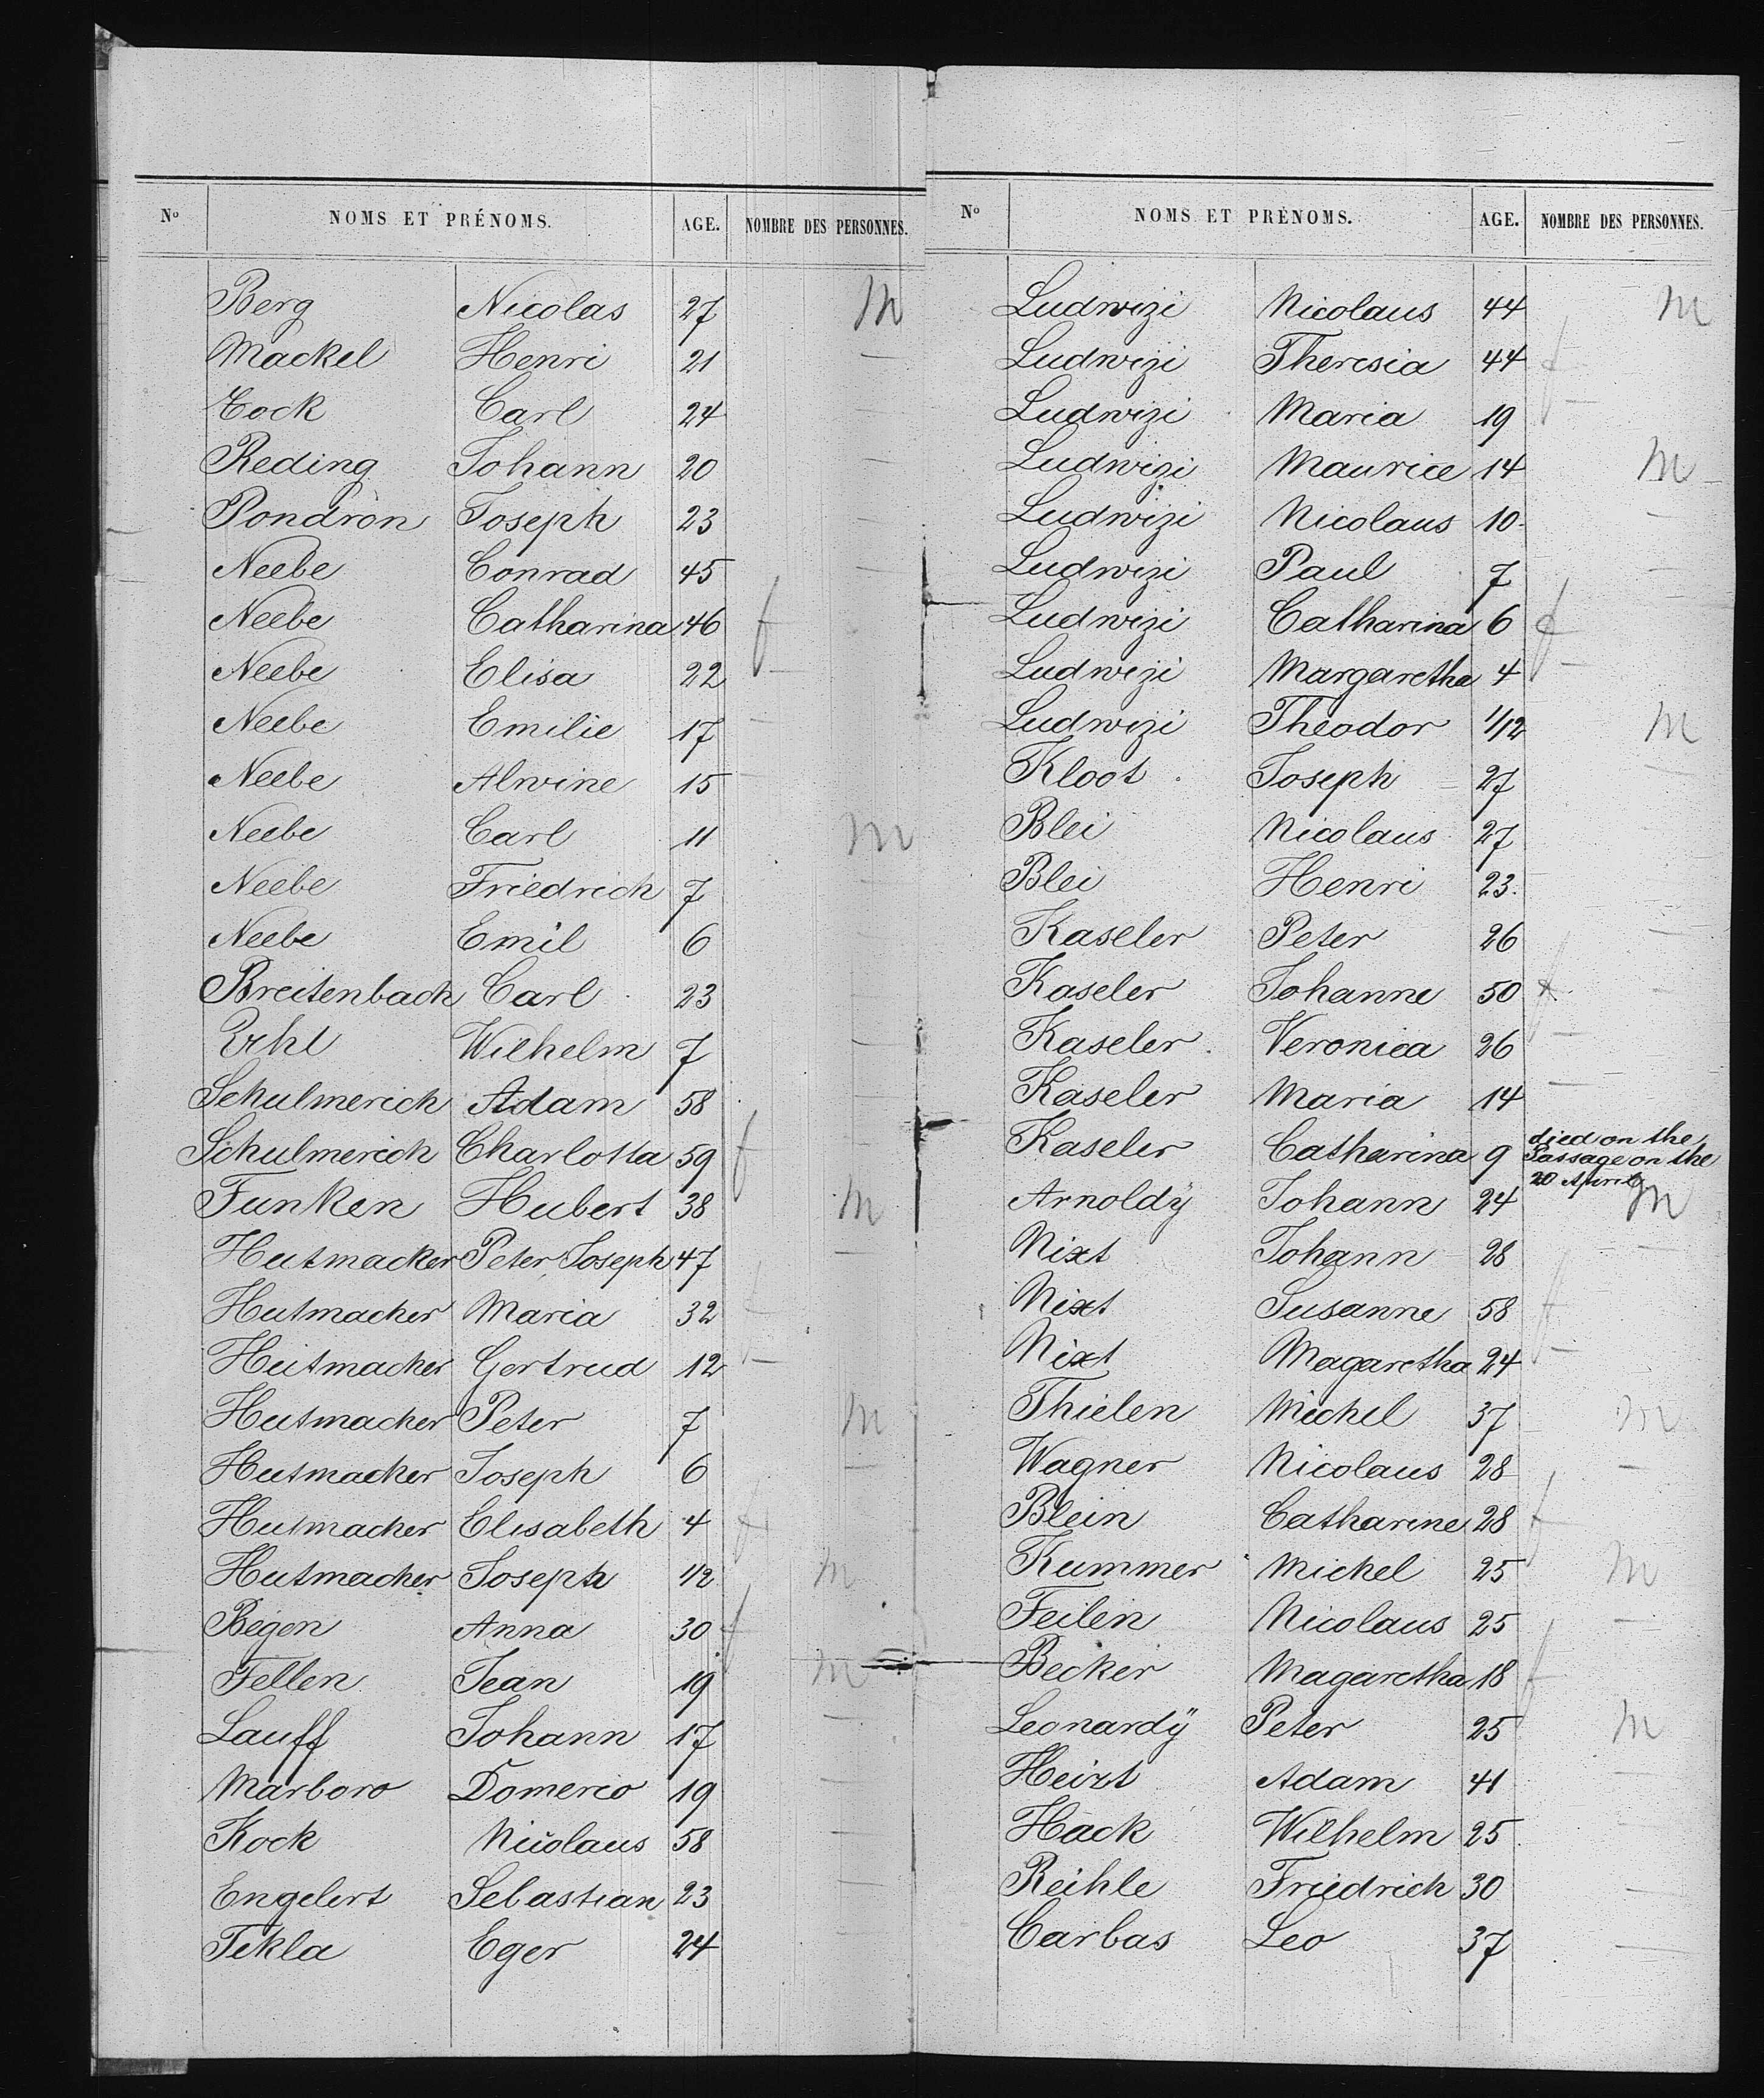 Nº NOMS ET PRÉNOMS. AGE. NOMBRE DES PERSONNES.
Berg Nicolas 27 m
Mackel Henri 21 —
Cock Carl 24 —
Reding Johann 20 —
Pondron Joseph 23 —
Neebe Conrad 45 —
Neebe Catharina 46 f
Neebe Elisa 22 —
Neebe Emilie 17 —
Neebe Alwine 15 —
Neebe Carl 11 m
Neebe Friedrich 7 —
Neebe Emil 6 —
Breitenbach Carl 23 —
Wilhelm 7 —
Schulmerich Adam 58 —
Schulmerich Charlotta 59 f
Funken Hubert 38 m
Hutmacker Peter Joseph 47 —
Hutmacher Maria 32 f
Hutmacher Gertrud 12 —
Hutmacher Peter 7 m
Hutmacher Joseph 6 —
Hutmacher Elisabeth 4 f
Hutmacher Joseph 1/2 m
Begon Anna 30 f
Fellen Jean 19 m
Lauff Johann 17 —
Marboro Domerco 19 —
Kock Nicolaus 58 —
Engelert Sebastian 23 —
Tekla Eger 24 —
Nº NOMS ET PRÉNOMS. AGE. NOMBRE DES PERSONNES.
Ludwizi Nicolaus 44 m
Ludwizi Theresia 44 f
Ludwizi Maria 19 —
Ludwizi Maurice 14 m
Ludwizi Nicolaus 10 —
Ludwizi Paul 7 —
Ludwizi Catharina 6 f
Ludwizi Margaretha 4 —
Ludwizi Theodor 1/12 m
Kloot Joseph 27 —
Blei Nicolaus 27 —
Blei Henri 23 —
Kaseler Peter 26 —
Kaseler Johanne 50 f
Kaseler Veronica 26 —
Kaseler Maria 14 —
Kaseler Catharina 9 died on the
Passage on the
20 April
Arnoldÿ Johann 24 m
Nixt Johann 28 —
Nixt Susanne 58 f
Nixt Magaretha 24 —
Thielen Michel 37 m
Wagner Nicolaus 28 —
Blein Catharine 28 f
Kummer Michel 25 m
Feilen Nicolaus 25 —
Becker Magaretha 18 f
Leonardÿ Peter 25 m
Heizt Adam 41 —
Hack Wilhelm 25 —
Reihle Friedrich 30 —
Carbas Leo 37 —